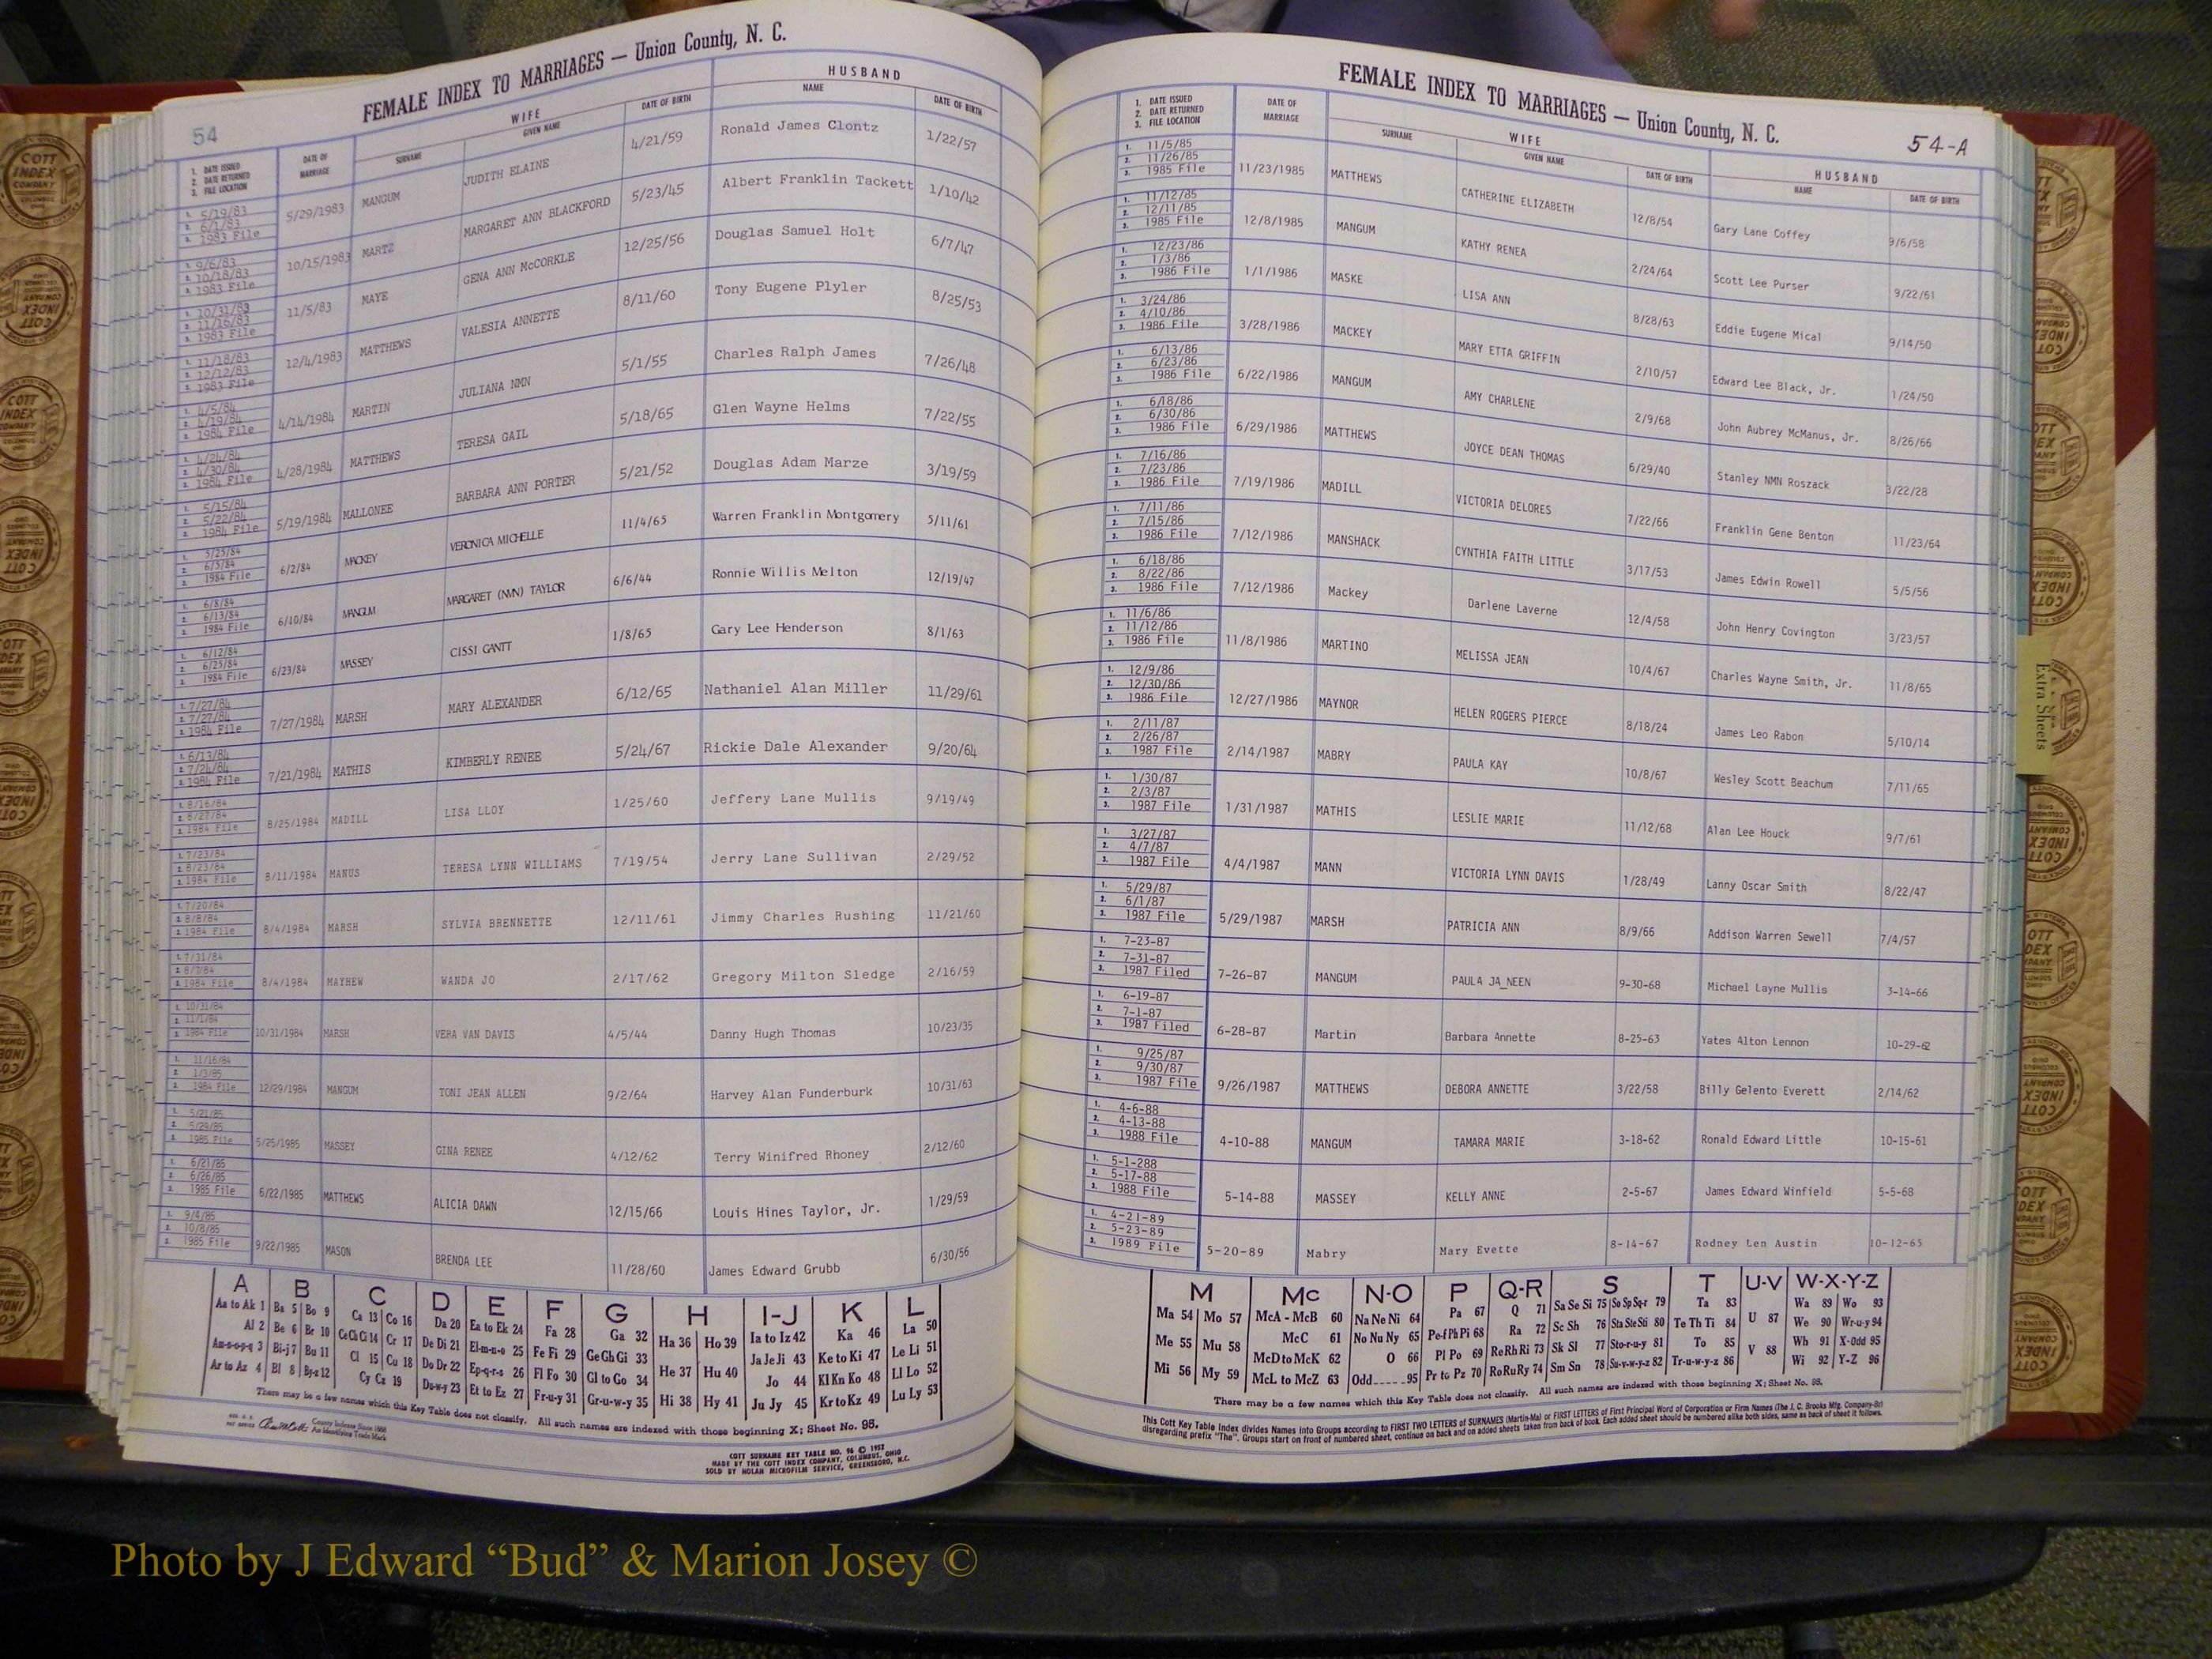 54
FEMALE INDEX TO MARRIAGES — Union County, N. C.
1. DATE ISSUED 2. DATE RETURNED 3. FILE LOCATION
DATE OF MARRIAGE
WIFE
SURNAME GIVEN NAME DATE OF BIRTH
HUSBAND
NAME DATE OF BIRTH
1. 5/19/83 2. 6/1/83 3. 1983 File 5/29/1983 MANGUM JUDITH ELAINE 4/21/59 Ronald James Clontz 1/22/57
1. 9/6/83 2. 10/18/83 3. 1983 File 10/15/1983 MARTZ MARGARET ANN BLACKFORD 5/23/45 Albert Franklin Tackett 1/10/42
1. 10/31/83 2. 11/16/83 3. 1983 File 11/5/83 MAYE GENA ANN McCORKLE 12/25/56 Douglas Samuel Holt 6/7/47
1. 11/18/83 2. 12/12/83 3. 1983 File 12/4/1983 MATTHEWS VALESIA ANNETTE 8/11/60 Tony Eugene Plyler 8/25/53
1. 4/5/84 2. 4/19/84 3. 1984 File 4/14/1984 MARTIN JULIANA NMN 5/1/55 Charles Ralph James 7/26/48
1. 4/24/84 2. 4/30/84 3. 1984 File 4/28/1984 MATTHEWS TERESA GAIL 5/18/65 Glen Wayne Helms 7/22/55
1. 5/15/84 2. 5/22/84 3. 1984 File 5/19/1984 MALLONEE BARBARA ANN PORTER 5/21/52 Douglas Adam Marze 3/19/59
1. 5/25/84 2. 6/5/84 3. 1984 File 6/2/84 MACKEY VERONICA MICHELLE 11/4/65 Warren Franklin Montgomery 5/11/61
1. 6/8/84 2. 6/13/84 3. 1984 File 6/10/84 MANGUM MARGARET (NMN) TAYLOR 6/6/44 Ronnie Willis Melton 12/19/47
1. 6/12/84 2. 6/25/84 3. 1984 File 6/23/84 MASSEY CISSI GANTT 1/8/65 Gary Lee Henderson 8/1/63
1. 7/27/84 2. 7/27/84 3. 1984 File 7/27/1984 MARSH MARY ALEXANDER 6/12/65 Nathaniel Alan Miller 11/29/61
1. 6/13/84 2. 7/24/84 3. 1984 File 7/21/1984 MATHIS KIMBERLY RENEE 5/24/67 Rickie Dale Alexander 9/20/64
1. 8/16/84 2. 8/27/84 3. 1984 File 8/25/1984 MADILL LISA LLOY 1/25/60 Jeffery Lane Mullis 9/19/49
1. 7/23/84 2. 8/23/84 3. 1984 File 8/11/1984 MANUS TERESA LYNN WILLIAMS 7/19/54 Jerry Lane Sullivan 2/29/52
1. 7/20/84 2. 8/8/84 3. 1984 File 8/4/1984 MARSH SYLVIA BRENNETTE 12/11/61 Jimmy Charles Rushing 11/21/60
1. 7/31/84 2. 8/7/84 3. 1984 File 8/4/1984 MAYHEW WANDA JO 2/17/62 Gregory Milton Sledge 2/16/59
1. 10/31/84 2. 11/1/84 3. 1984 File 10/31/1984 MARSH VERA VAN DAVIS 4/5/44 Danny Hugh Thomas 10/23/35
1. 11/16/84 2. 1/3/85 3. 1984 File 12/29/1984 MANGUM TONI JEAN ALLEN 9/2/64 Harvey Alan Funderburk 10/31/63
1. 5/21/85 2. 5/29/85 3. 1985 File 5/25/1985 MASSEY GINA RENEE 4/12/62 Terry Winifred Rhoney 2/12/60
1. 6/21/85 2. 6/26/85 3. 1985 File 6/22/1985 MATTHEWS ALICIA DAWN 12/15/66 Louis Hines Taylor, Jr. 1/29/59
1. 9/4/85 2. 10/8/85 3. 1985 File 9/22/1985 MASON BRENDA LEE 11/28/60 James Edward Grubb 6/30/56
A B C D E F G H I-J K L
Aa to Ak 1 Ba 5 Bo 9 Ca 13 Co 16 Da 20 Ea to Ek 24 Fa 28 Ga 32 Ha 36 Ho 39 Ia to Iz 42 Ka 46 La 50
Al 2 Be 6 Br 10 Ce Ch Ci 14 Cr 17 De Di 21 El-m-n-o 25 Fe Fi 29 Ge Gh Gi 33 He 37 Hu 40 Ja Je Ji 43 Ke to Ki 47 Le Li 51
Am-n-o-p-q 3 Bi-j 7 Bu 11 Cl 15 Cu 18 Do Dr 22 Ep-q-r-s 26 Fl Fo 30 Gl to Go 34 Hi 38 Hy 41 Jo 44 Kl Kn Ko 48 Ll Lo 52
Ar to Az 4 Bl 8 By-z 12 Cy Cz 19 Du-w-y 23 Et to Ez 27 Fr-u-y 31 Gr-u-w-y 35 Ju Jy 45 Kr to Kz 49 Lu Ly 53
There may be a few names which this Key Table does not classify. All such names are indexed with those beginning X; Sheet No. 95.
County Indexes Since 1888
An Identifying Trade Mark
COTT SURNAME KEY TABLE NO. 96 © 1952
MADE BY THE COTT INDEX COMPANY, COLUMBUS, OHIO
SOLD BY NOLAN MICROFILM SERVICE, GREENSBORO, N.C.
FEMALE INDEX TO MARRIAGES — Union County, N. C.
54-A
1. DATE ISSUED 2. DATE RETURNED 3. FILE LOCATION
DATE OF MARRIAGE
WIFE
SURNAME GIVEN NAME DATE OF BIRTH
HUSBAND
NAME DATE OF BIRTH
1. 11/5/85 2. 11/26/85 3. 1985 File 11/23/1985 MATTHEWS CATHERINE ELIZABETH 12/8/54 Gary Lane Coffey 9/6/58
1. 11/12/85 2. 12/11/85 3. 1985 File 12/8/1985 MANGUM KATHY RENEA 2/24/64 Scott Lee Purser 9/22/61
1. 12/23/86 2. 1/3/86 3. 1986 File 1/1/1986 MASKE LISA ANN 8/28/63 Eddie Eugene Mical 9/14/50
1. 3/24/86 2. 4/10/86 3. 1986 File 3/28/1986 MACKEY MARY ETTA GRIFFIN 2/10/57 Edward Lee Black, Jr. 1/24/50
1. 6/13/86 2. 6/23/86 3. 1986 File 6/22/1986 MANGUM AMY CHARLENE 2/9/68 John Aubrey McManus, Jr. 8/26/66
1. 6/18/86 2. 6/30/86 3. 1986 File 6/29/1986 MATTHEWS JOYCE DEAN THOMAS 6/29/40 Stanley NMN Roszack 3/22/28
1. 7/16/86 2. 7/23/86 3. 1986 File 7/19/1986 MADILL VICTORIA DELORES 7/22/66 Franklin Gene Benton 11/23/64
1. 7/11/86 2. 7/15/86 3. 1986 File 7/12/1986 MANSHACK CYNTHIA FAITH LITTLE 3/17/53 James Edwin Rowell 5/5/56
1. 6/18/86 2. 8/22/86 3. 1986 File 7/12/1986 Mackey Darlene Laverne 12/4/58 John Henry Covington 3/23/57
1. 11/6/86 2. 11/12/86 3. 1986 File 11/8/1986 MARTINO MELISSA JEAN 10/4/67 Charles Wayne Smith, Jr. 11/8/65
1. 12/9/86 2. 12/30/86 3. 1986 File 12/27/1986 MAYNOR HELEN ROGERS PIERCE 8/18/24 James Leo Rabon 5/10/14
1. 2/11/87 2. 2/26/87 3. 1987 File 2/14/1987 MABRY PAULA KAY 10/8/67 Wesley Scott Beachum 7/11/65
1. 1/30/87 2. 2/3/87 3. 1987 File 1/31/1987 MATHIS LESLIE MARIE 11/12/68 Alan Lee Houck 9/7/61
1. 3/27/87 2. 4/7/87 3. 1987 File 4/4/1987 MANN VICTORIA LYNN DAVIS 1/28/49 Lanny Oscar Smith 8/22/47
1. 5/29/87 2. 6/1/87 3. 1987 File 5/29/1987 MARSH PATRICIA ANN 8/9/66 Addison Warren Sewell 7/4/57
1. 7-23-87 2. 7-31-87 3. 1987 Filed 7-26-87 MANGUM PAULA JA_NEEN 9-30-68 Michael Layne Mullis 3-14-66
1. 6-19-87 2. 7-1-87 3. 1987 Filed 6-28-87 Martin Barbara Annette 8-25-63 Yates Alton Lennon 10-29-62
1. 9/25/87 2. 9/30/87 3. 1987 File 9/26/1987 MATTHEWS DEBORA ANNETTE 3/22/58 Billy Gelento Everett 2/14/62
1. 4-6-88 2. 4-13-88 3. 1988 File 4-10-88 MANGUM TAMARA MARIE 3-18-62 Ronald Edward Little 10-15-61
1. 5-1-288 2. 5-17-88 3. 1988 File 5-14-88 MASSEY KELLY ANNE 2-5-67 James Edward Winfield 5-5-68
1. 4-21-89 2. 5-23-89 3. 1989 File 5-20-89 Mabry Mary Evette 8-14-67 Rodney Len Austin 10-12-65
M Mc N-O P Q-R S T U-V W-X-Y-Z
Ma 54 Mo 57 McA - McB 60 Na Ne Ni 64 Pa 67 Q 71 Sa Se Si 75 So Sp Sq-r 79 Ta 83 U 87 Wa 89 Wo 93
Me 55 Mu 58 McC 61 No Nu Ny 65 Pe-f Ph Pi 68 Ra 72 Sc Sh 76 Sta Ste Sti 80 Te Th Ti 84 V 88 We 90 Wr-u-y 94
Mi 56 My 59 McD to McK 62 O 66 Pl Po 69 Re Rh Ri 73 Sk Sl 77 Sto-r-u-y 81 To 85 Wh 91 X-Odd 95
McL to McZ 63 Odd 95 Pr to Pz 70 Ro Ru Ry 74 Sm Sn 78 Su-v-w-y-z 82 Tr-u-w-y-z 86 Wi 92 Y-Z 96
There may be a few names which this Key Table does not classify. All such names are indexed with those beginning X; Sheet No. 95.
This Cott Key Table Index divides Names into Groups according to FIRST TWO LETTERS of SURNAMES (Martin-Ma) or FIRST LETTERS of First Principal Word of Corporation or Firm Names (The J. C. Brooks Mfg. Company-Br)
disregarding prefix "The". Groups start on front of numbered sheet, continue on back and on added sheets taken from back of book. Each added sheet should be numbered alike both sides, same as back of sheet it follows.
Extra Sheets
COTT INDEX COMPANY COLUMBUS OHIO
Photo by J Edward “Bud” & Marion Josey ©